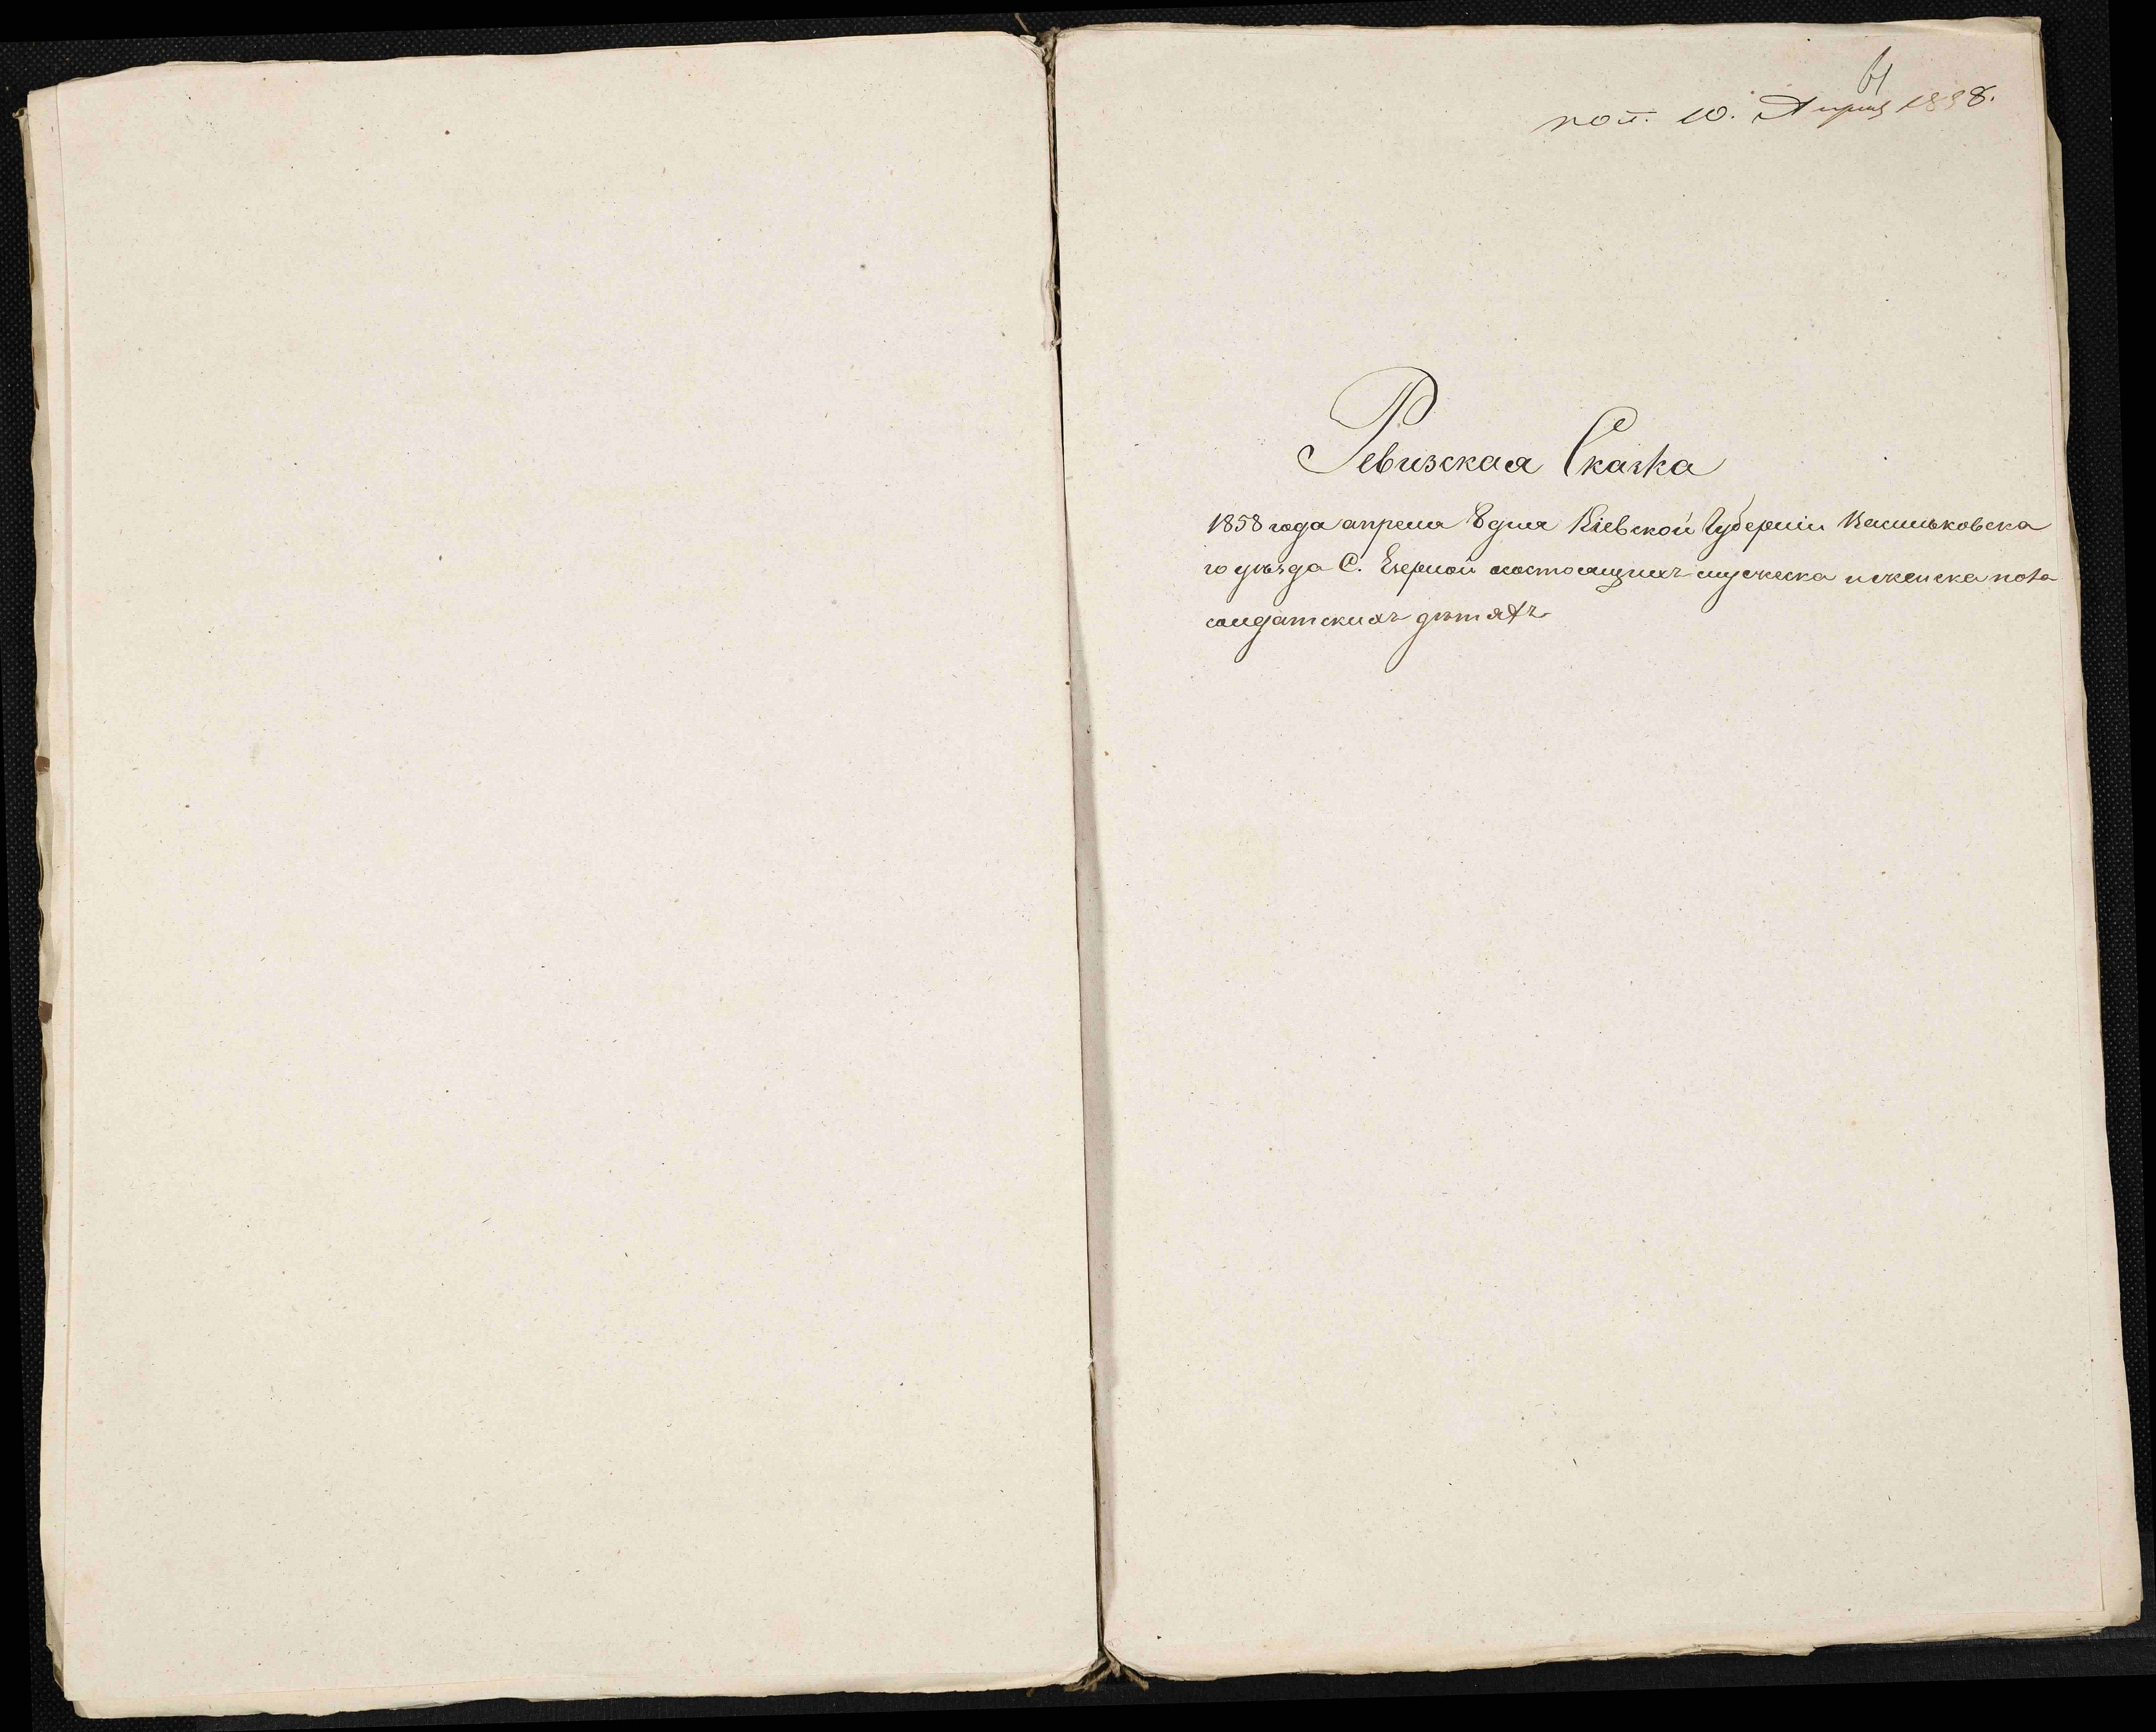 61
пол. 10. Апреля 1858.
Ревизская Сказка
1858 года апреля 8 дня Кіевской Губерніи Васильковска
го уѣзда С. Езерной состоящихъ мужеска и женска пола
солдатскихъ дѣтяхъ